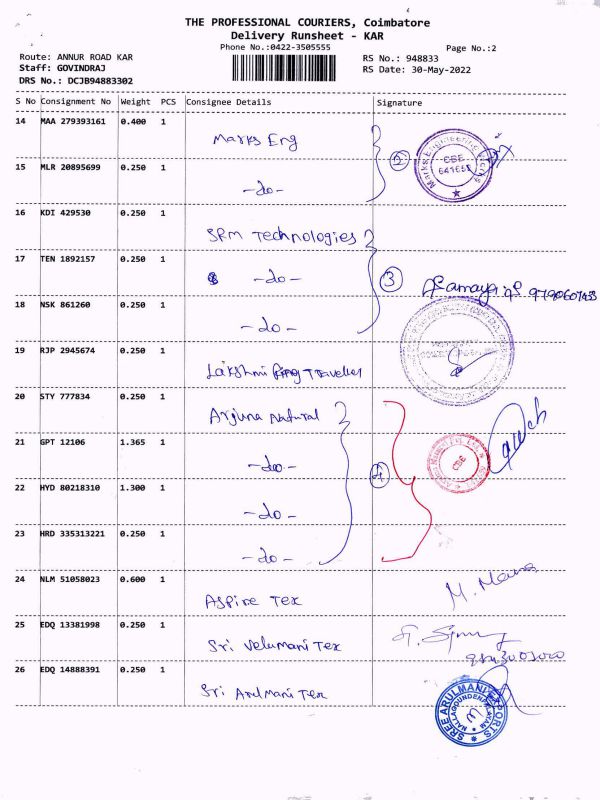 THE PROFESSIONAL COURIERS, Coimbatore
Delivery Runsheet - KAR
Phone No.:0422-3505555 Page No.:2
Route: ANNUR ROAD KAR RS No.: 948833
Staff: GOVINDRAJ RS Date: 30-May-2022
DRS No.: DCJB94883302
S No Consignment No Weight PCS Consignee Details Signature
14 MAA 279393161 0.400 1
Marks Eng
2
Marks Engineering
CBE
15 MLR 20895699 0.250 1
-do-
16 KDI 429530 0.250 1
SRM Technologies
17 TEN 1892157 0.250 1
-do- 3
18 NSK 861260 0.250 1
-do-
19 RJP 2945674 0.250 1
Lakshmi Ring Traveller
20 STY 777834 0.250 1
Arjuna Natural
21 GPT 12106 1.365 1
-do- 4 CBE
22 HYD 80218310 1.300 1
-do-
23 HRD 335313221 0.250 1
-do-
24 NLM 51058023 0.600 1
Aspire Tex
25 EDQ 13381998 0.250 1
Sri Velumani Tex
26 EDQ 14888391 0.250 1
Sri Arulmani Tex
SREE ARULMANI EXPORTS
NALLAGOUNDENPALAYAM